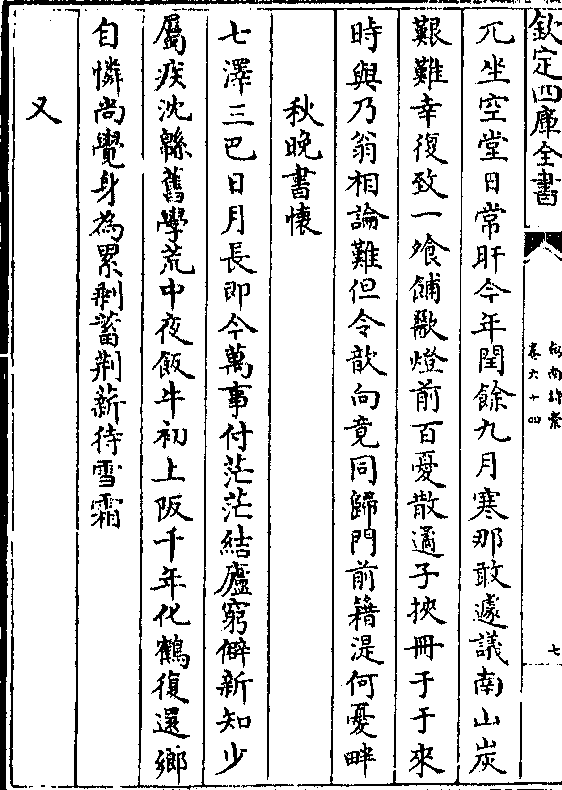 欽定四庫全書
劍南詩藁
卷六十四
七
兀坐空堂日常旰今年閏餘九月寒那敢遽議南山炭
艱難幸復致一飧餔歠燈前百憂散遹子挾冊于于來
時與乃翁相論難但令歆向竟同歸門前籍湜何憂畔
秋晚書懷
七澤三巴日月長即今萬事付茫茫結廬窮僻新知少
屬疾沈緜舊學荒中夜飯牛初上阪千年化鶴復還鄉
自憐尚覺身為累剩蓄荆薪待雪霜
又